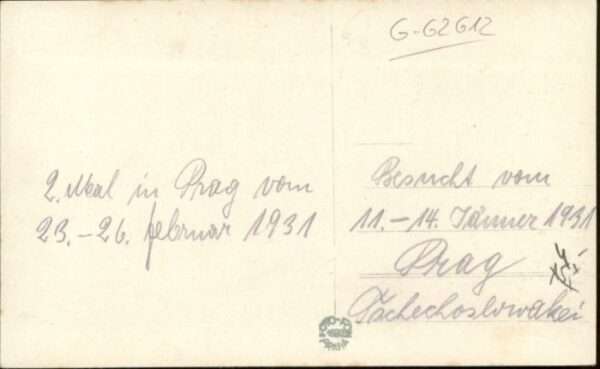 G-62612
2. Mal in Prag vom
23.-26. februar 1931
Besucht vom
11.-14. Jänner 1931
Prag
Tschechoslowakei